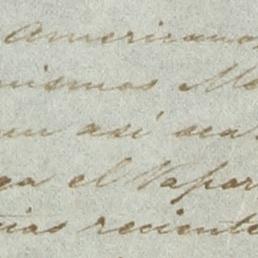 Americanos
mismos Me
aun así aca
ga el Vapor
cias reciente